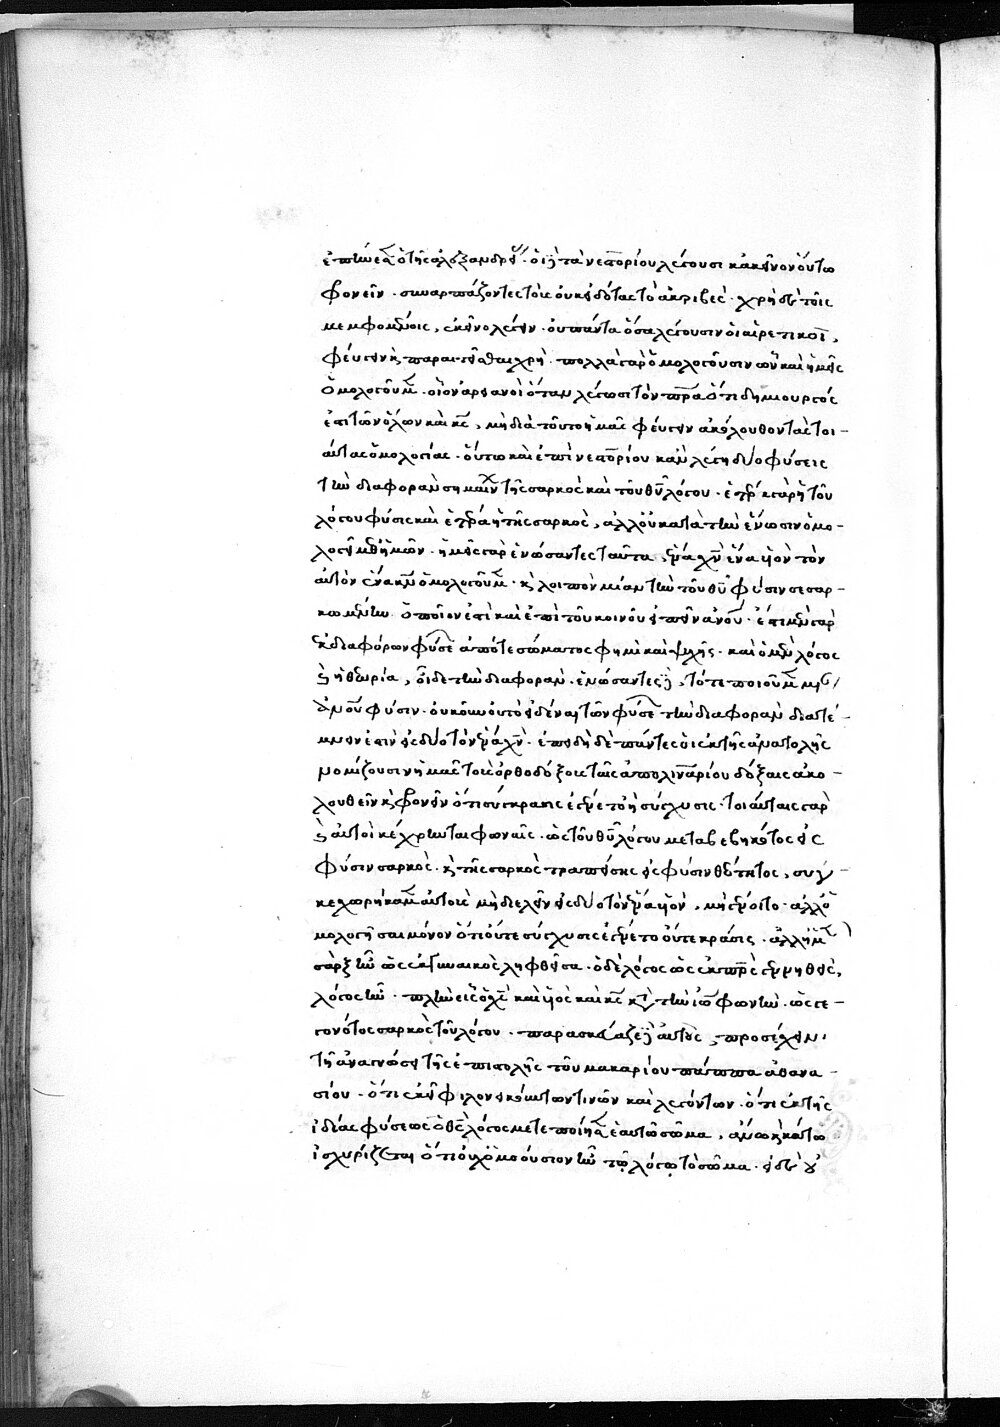 ἐπήνεσεν ὁ τῆς ἀλεξανδρέων· οἱ δὲ τὰ νεστορίου λέγουσι κἀκεῖνον οὕτω
φρονεῖν· συναρπάζοντες τοὺς οὐκ εἰδότας τὸ ἀκριβές· χρὴ δὲ τοῖς
μεμφομένοις, ἐκεῖνο λέγειν· οὐ πάντα ὅσα λέγουσιν οἱ αἱρετικοὶ,
φεύγειν καὶ παραιτεῖσθαι χρή· πολλὰ γὰρ ὁμολογοῦσιν ὧν καὶ ἡμεῖς
ὁμολογοῦμεν· οἷον ἀρειανοὶ ὅταν λέγωσι τὸν πατέρα ὅτι δημιουργός
ἐστι τῶν ὅλων καὶ κύριος, μὴ διὰ τοῦτο ἡμᾶς φεύγειν ἀκόλουθον τὰς τοι-
αύτας ὁμολογίας· οὕτω καὶ ἐπὶ νεστορίου κἂν λέγῃ δύο φύσεις
τὴν διαφορὰν σημαίνων τῆς σαρκὸς καὶ τοῦ θεοῦ λόγου· ἑτέρα γὰρ ἡ τοῦ
λόγου φύσις καὶ ἑτέρα ἡ τῆς σαρκὸς, ἀλλ' οὐκέτι τὴν ἕνωσιν ὁμο-
λογεῖ μεθ' ἡμῶν· ἡμεῖς γὰρ ἑνώσαντες ταῦτα, ἕνα χριστὸν ἕνα υἱὸν τὸν
αὐτὸν ἕνα κύριον ὁμολογοῦμεν· καὶ λοιπὸν μίαν τὴν τοῦ θεοῦ φύσιν σεσαρ-
κωμένην· ὁποῖον ἐστὶ καὶ ἐπὶ τοῦ κοινοῦ εἰπεῖν ἀνθρώπου· ἔστι μὲν γὰρ
ἐκ διαφόρων φύσεων ἀπό τε σώματος φημὶ καὶ ψυχῆς· καὶ ὁ μὲν λόγος
καὶ ἡ θεωρία, οἶδε τὴν διαφοράν· ἑνώσαντες δὲ, τότε ποιοῦμεν μίαν
ἀνθρώπου φύσιν· οὐκοῦν οὐ τὸ εἰδέναι τῶν φύσεων τὴν διαφορὰν διατέ-
μνειν ἐστὶν εἰς δύο τὸν ἕνα χριστόν· ἐπειδὴ δὲ πάντες οἱ ἐκ τῆς ἀνατολῆς
νομίζουσιν ἡμᾶς τοὺς ὀρθοδόξους ταῖς ἀπολιναρίου δόξαις ἀκο-
λουθεῖν καὶ φρονεῖν ὅτι σύγκρασις ἐγένετο ἢ σύγχυσις· τοιαύταις γὰρ
καὶ αὐτοὶ κέχρηνται φωναῖς· ὡς τοῦ θεοῦ λόγου μεταβεβηκότος εἰς
φύσιν σαρκὸς· καὶ τῆς σαρκὸς τραπείσης εἰς φύσιν θεότητος, συγ-
κεχωρήκαμεν αὐτοῖς μὴ διελεῖν εἰς δύο τὸν ἕνα υἱὸν, μὴ γένοιτο· ἀλλ' ὁ-
μολογῆσαι μόνον ὅτι οὔτε σύγχυσις ἐγένετο οὔτε κρᾶσις· ἀλλ' ἡ μὲν
σὰρξ ἦν ὡς ἐκ γυναικὸς ληφθεῖσα· ὁ δὲ λόγος ὡς ἐκ πατρὸς γεννηθείς,
λόγος ἦν· πλὴν εἷς ὁ χριστὸς καὶ υἱὸς καὶ κύριος κατὰ τὴν ἰωάννου φωνὴν· ὡς γε-
γονότος σαρκὸς τοῦ λόγου· παρασκεύαζε δὲ αὐτοὺς, προσέχειν
τῇ ἀναγνώσει τῆς ἐπιστολῆς τοῦ μακαρίου πάππα ἀθανα-
σίου· ὅτι ἐκεῖ φιλονεικούντων τινῶν καὶ λεγόντων· ὅτι ἐκ τῆς
ἰδίας φύσεως ὁ θεὸς λόγος μετεποίησεν ἑαυτῷ σῶμα, ἄνω καὶ κάτω
ἰσχυρίζεται ὅτι οὐχ ὁμοούσιον ἦν τῷ λόγῳ τὸ σῶμα· εἰ δὲ οὐχ